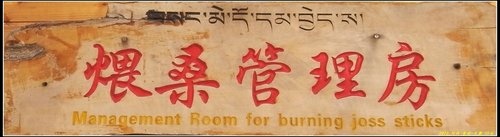 བསང་མེ་དོ་དམ་བྱེད་ས།
煨桑管理房
Management Room for burning joss sticks